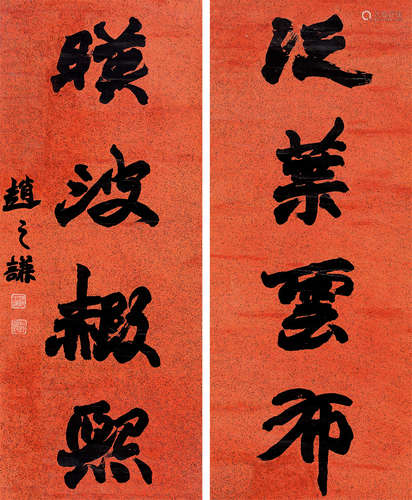 泛葉雲布
暎波赮熙
趙之謙